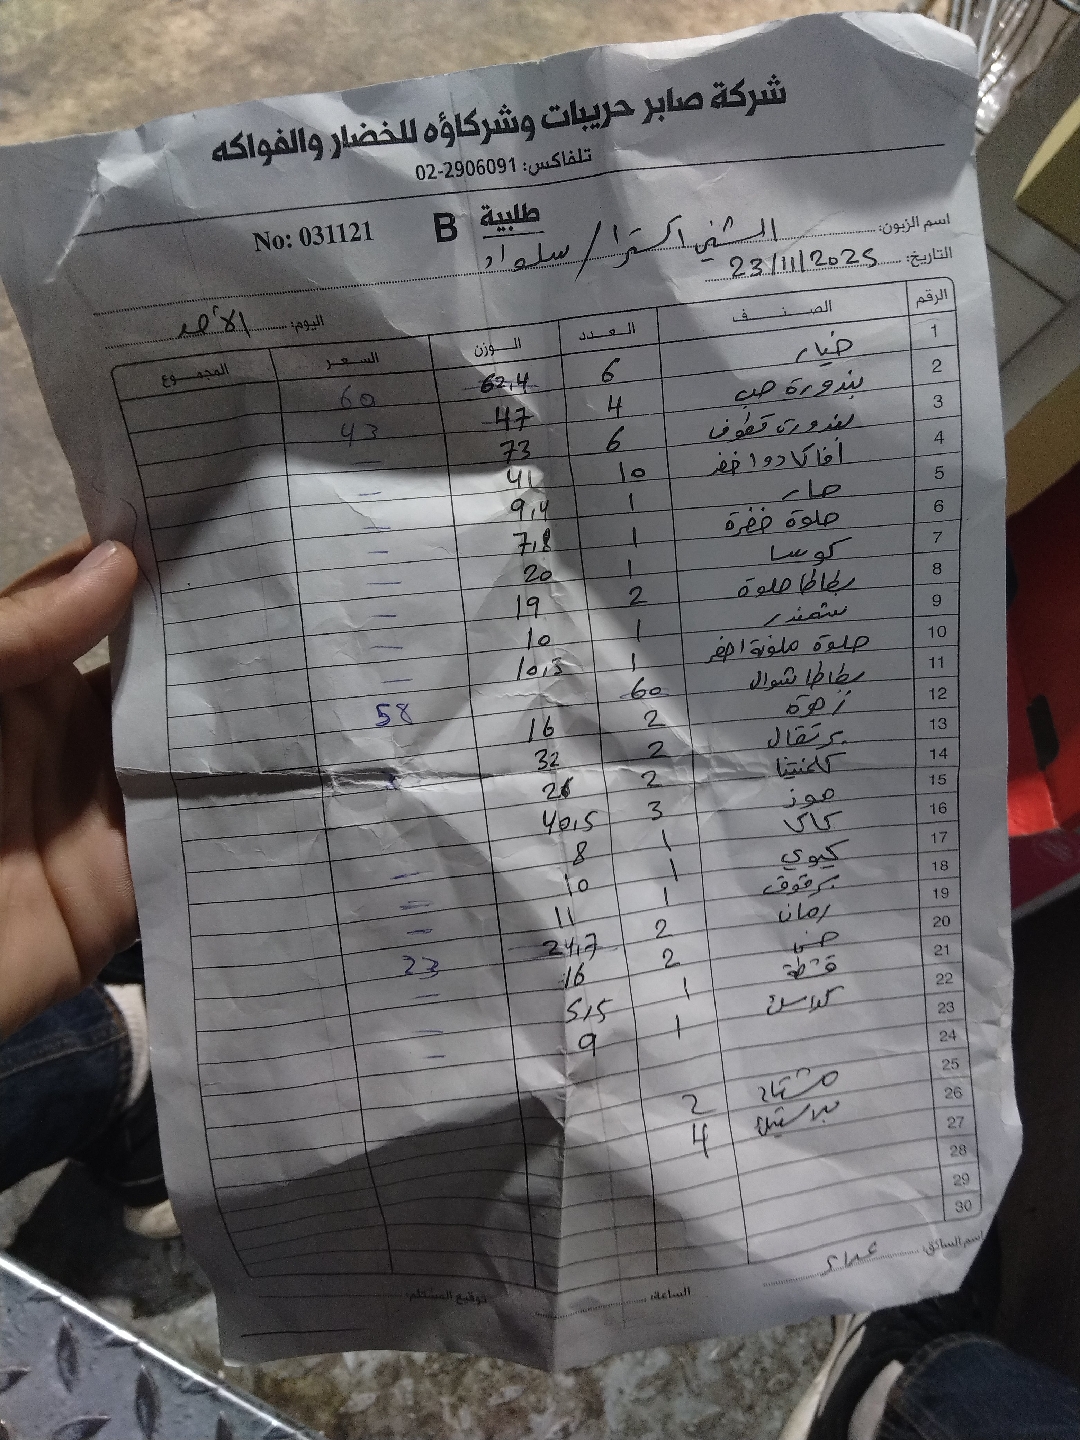 شركة صابر حريبات وشركاؤه للخضار والفواكه
تلفاكس: 02-2906091
No: 031121 طلبية B
اسم الزبون: الشني اكسترا / سلواد
التاريخ: 23/11/2025
اليوم: الأحد
الرقم الصنف العدد الوزن السعر المجموع
1 خيار 6 62,4 60
2 بندورة حب 4 47 43
3 بندورة قطوف 6 73 —
4 أفاكادو اخضر 10 41 —
5 حار 1 9,4 —
6 حلوة خضرة 1 7,8 —
7 كوسا 1 20 —
8 بطاطا حلوة 2 19 —
9 شمندر 1 10 —
10 حلوة ملونة اخضر 1 10,3 —
11 بطاطا شوال 60 58
12 زهرة 2 16
13 برتقال 2 32
14 كلمنتينا 2 26
15 موز 3 40,5
16 كاكا 1 8 —
17 كيوي 1 10 —
18 برقوق 1 11 —
19 رمان 2 24,7 23
20 2 16 —
21 قشطة 1 5,5 —
22 1 9 —
23
24
25 مشتاح 2
26 بلاستيك 4
27
28
29
30
اسم السائق:
الساعة:
توقيع المستلم: